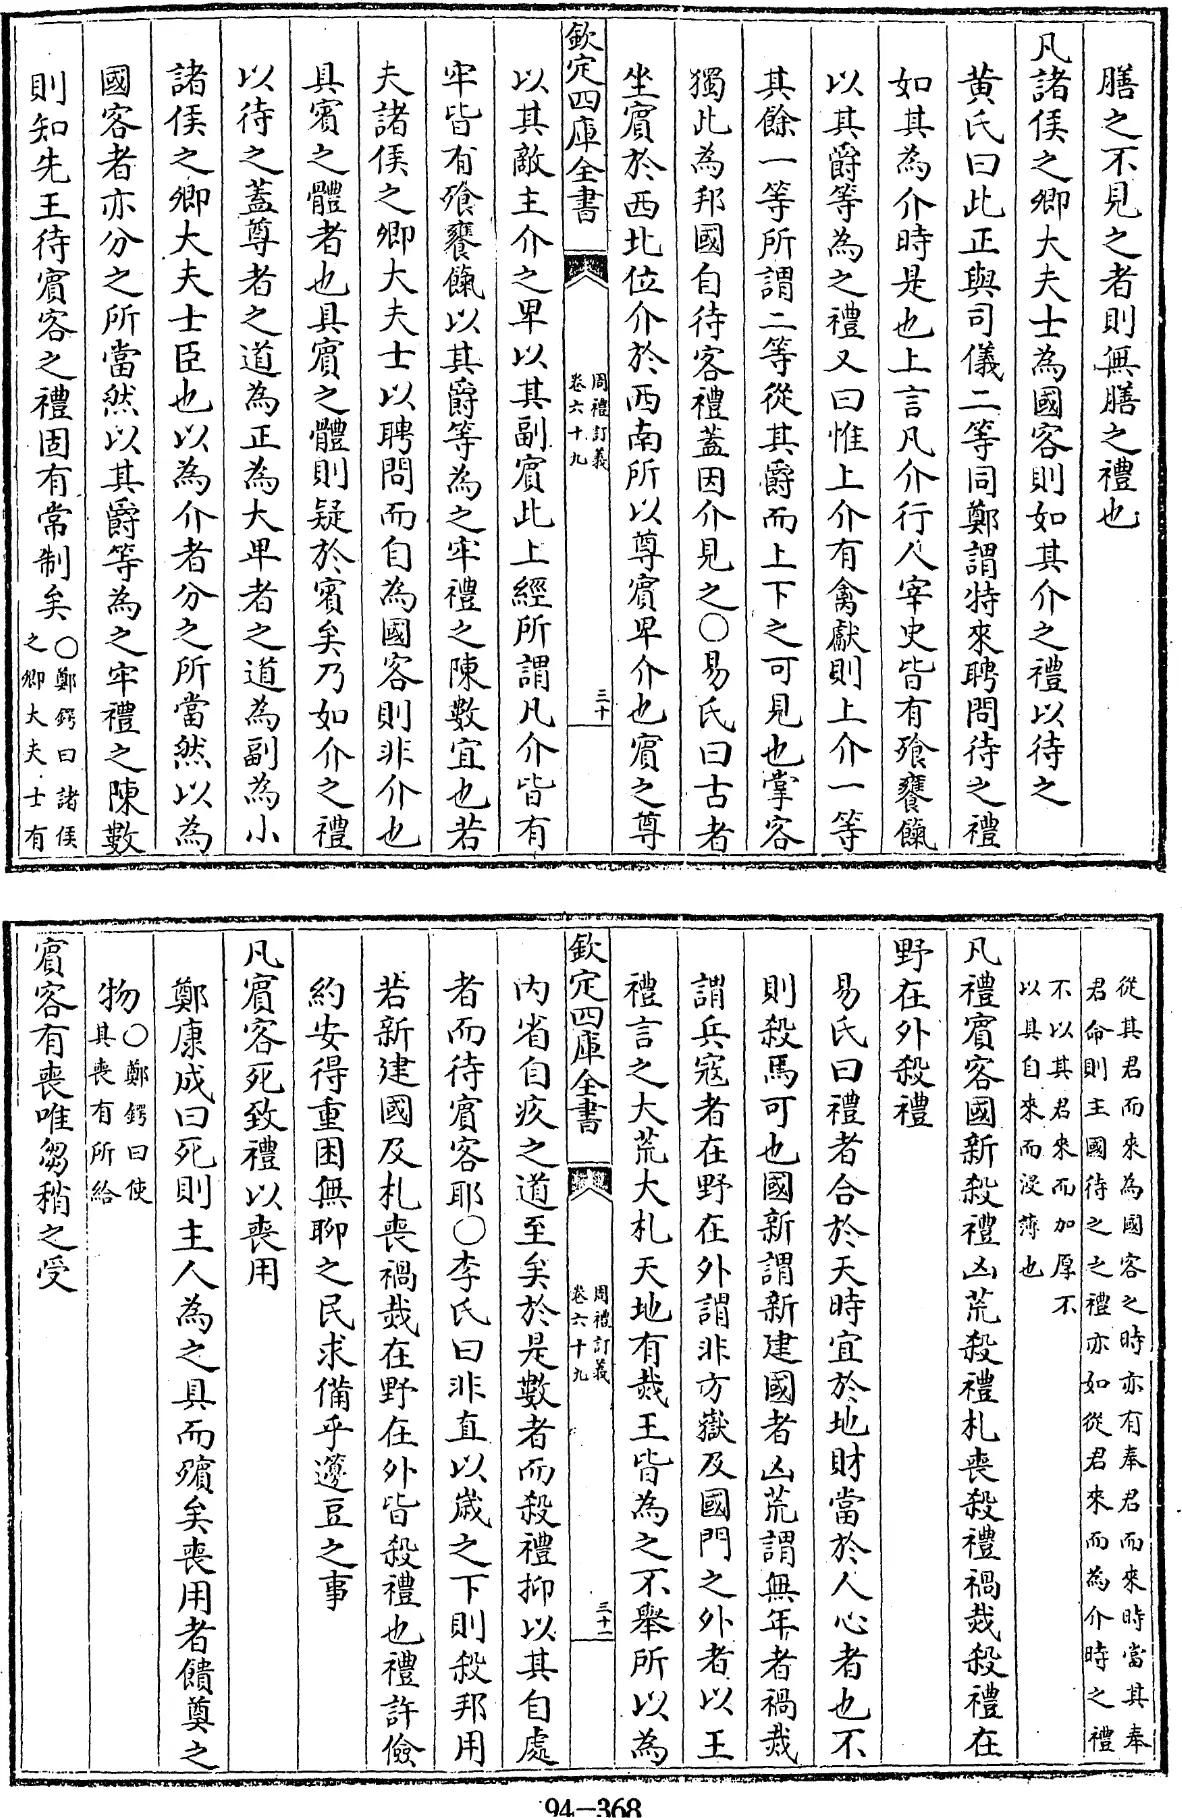 膳之不見之者則無膳之禮也
凡諸侯之卿大夫士為國客則如其介之禮以待之
黄氏曰此正與司儀二等同鄭謂特來聘問待之禮
如其為介時是也上言凡介行人宰史皆有飱饔餼
以其爵等為之禮又曰惟上介有禽獻則上介一等
其餘一等所謂二等從其爵而上下之可見也掌客
獨此為邦國自待客禮蓋因介見之○易氏曰古者
坐賓於西北位介於西南所以尊賓卑介也賓之尊
欽定四庫全書
周禮訂義
卷六十九
三十
以其敵主介之卑以其副賓此上經所謂凡介皆有
牢皆有飱饔餼以其爵等為之牢禮之陳數宜也若
夫諸侯之卿大夫士以聘問而自為國客則非介也
具賓之體者也具賓之體則疑於賓矣乃如介之禮
以待之蓋尊者之道為正為大卑者之道為副為小
諸侯之卿大夫士臣也以為介者分之所當然以為
國客者亦分之所當然以其爵等為之牢禮之陳數
則知先王待賓客之禮固有常制矣○鄭鍔曰諸侯
之卿大夫士有
從其君而來為國客之時亦有奉君而來時當其奉
君命則主國待之之禮亦如從君來而為介時之禮
不以其君來而加厚不
以其自來而浸薄也
凡禮賓客國新殺禮凶荒殺禮札喪殺禮禍烖殺禮在
野在外殺禮
易氏曰禮者合於天時宜於地財當於人心者也不
則殺焉可也國新謂新建國者凶荒謂無年者禍烖
謂兵寇者在野在外謂非方嶽及國門之外者以王
禮言之大荒大札天地有烖王皆為之不舉所以為
欽定四庫全書
周禮訂義
卷六十九
三十一
内省自疚之道至矣於是數者而殺禮抑以其自處
者而待賓客耶○李氏曰非直以嵗之下則殺邦用
若新建國及札喪禍烖在野在外皆殺禮也禮許儉
約安得重困無聊之民求備乎籩豆之事
凡賓客死致禮以喪用
鄭康成曰死則主人為之具而殯矣喪用者饋奠之
物○鄭鍔曰使
其喪有所給
賓客有喪唯芻稍之受
94-368